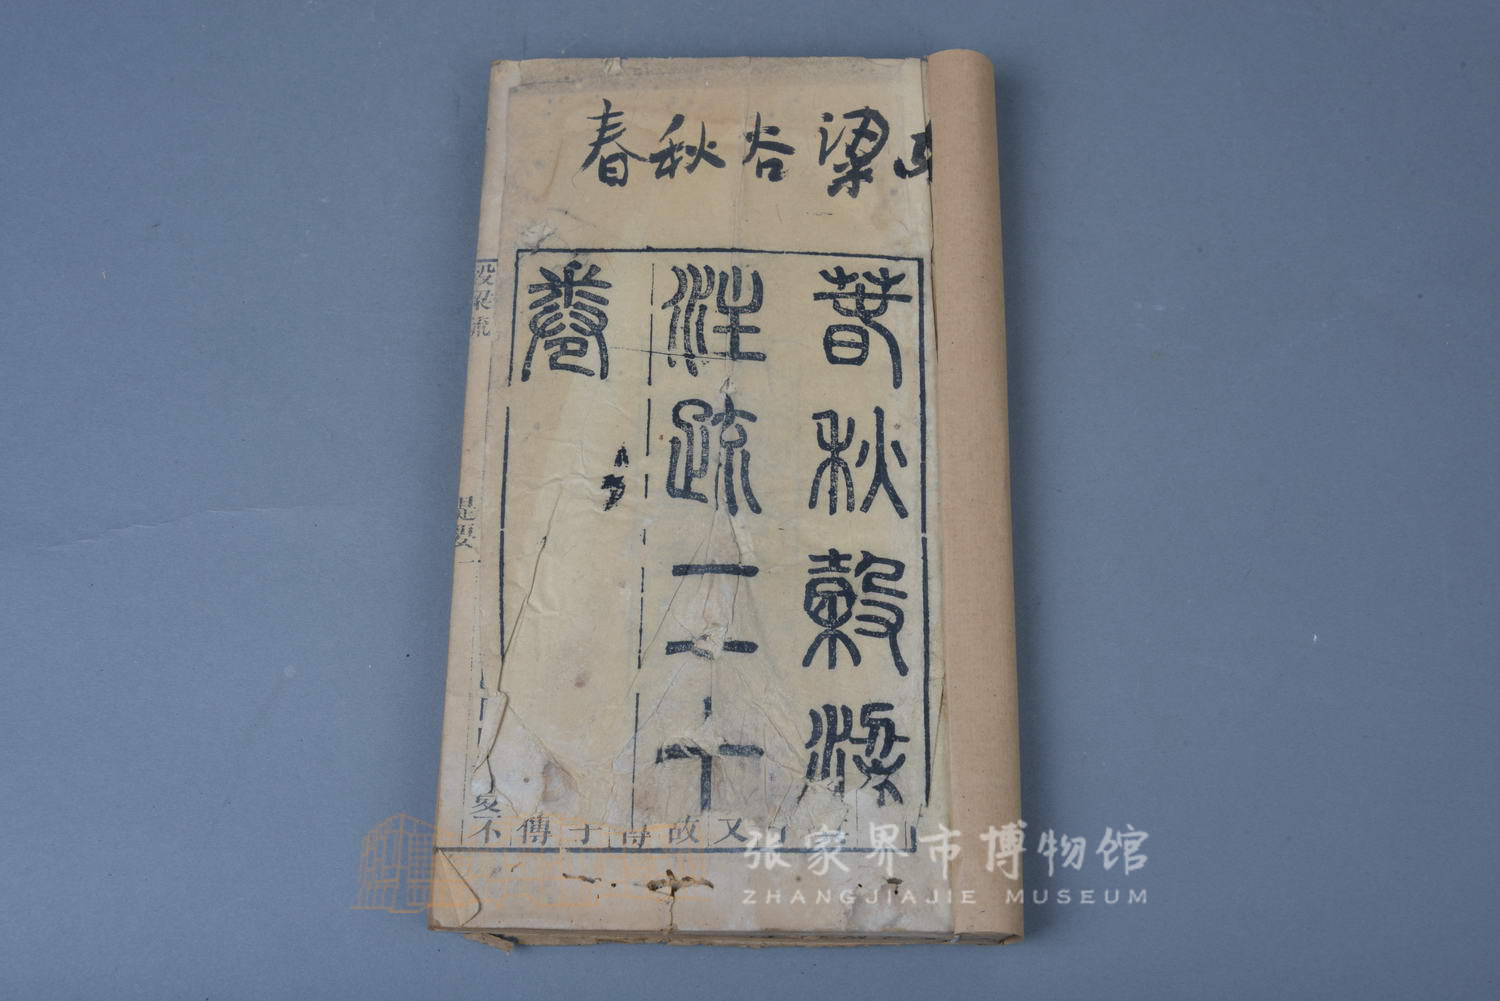 春秋谷梁
春秋穀梁
注疏二十
卷
穀梁疏
提要 一
又
故
得
于
傳
不
张家界市博物馆
ZHANGJIAJIE MUSEUM